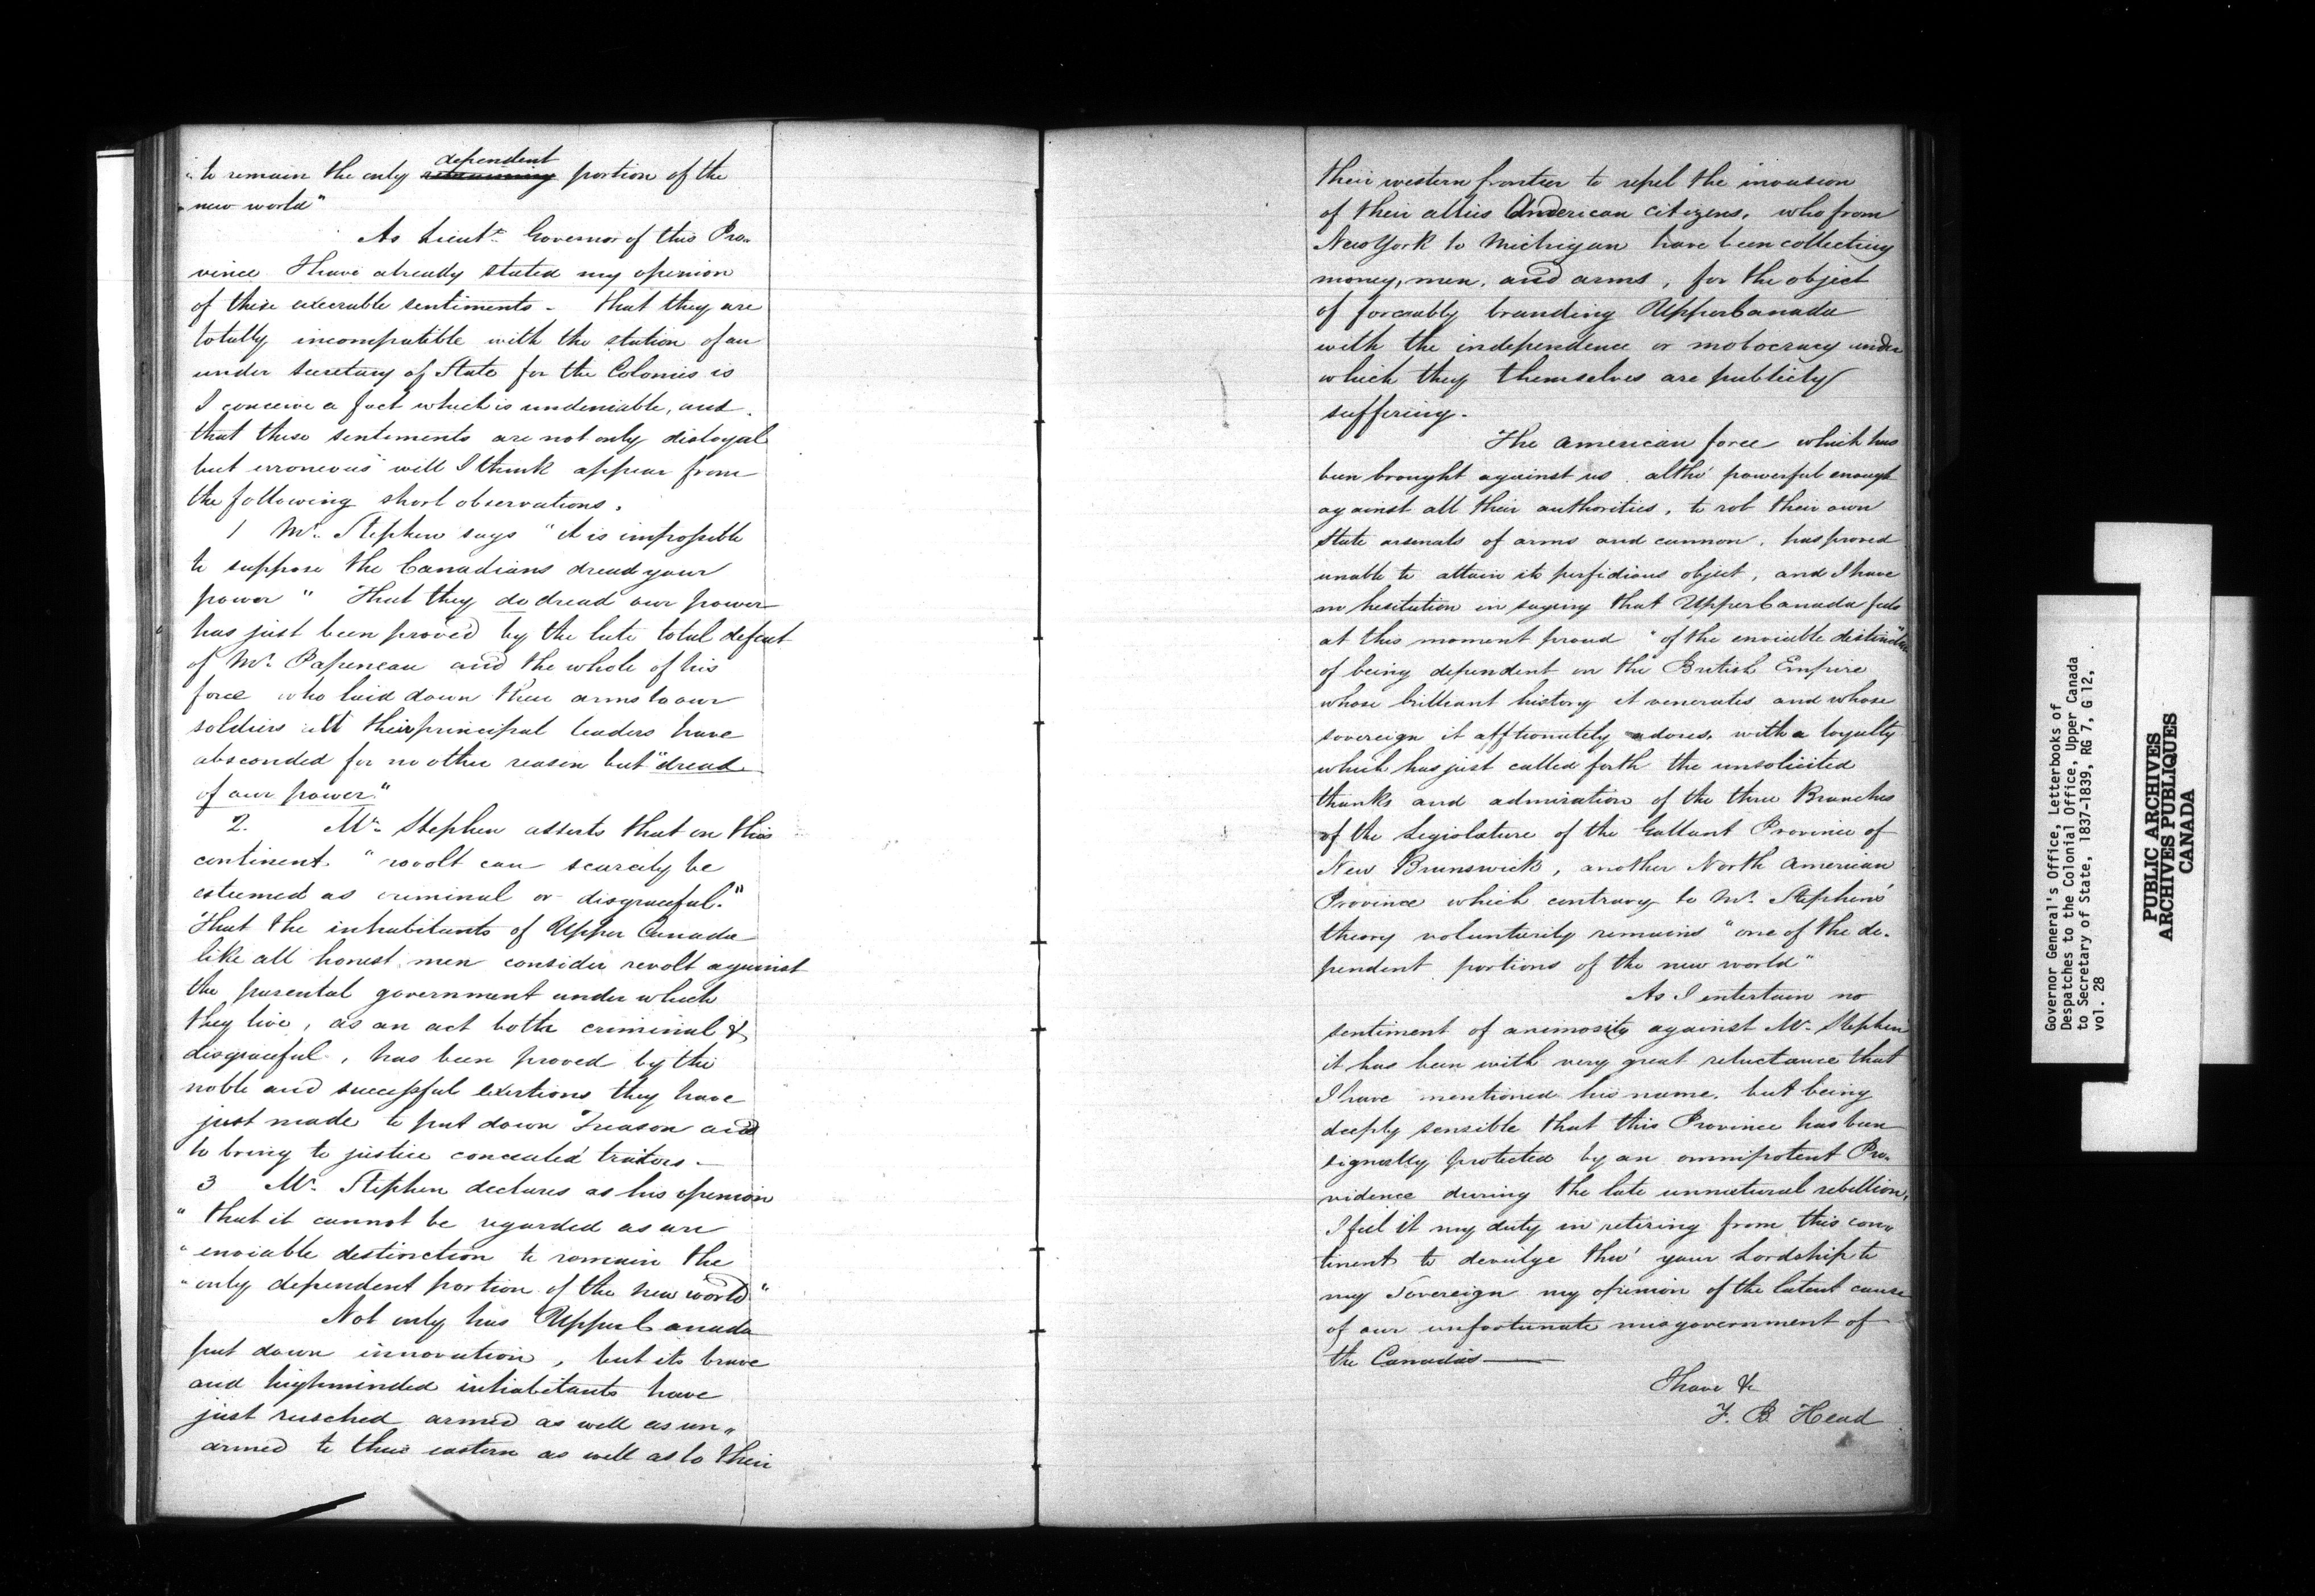 " to remain the only remaining dependent portion of the
" new world"
As Lieut. Governor of this Pro-
vince I have already stated my opinion
of these execrable sentiments - That they are
totally incompatible with the station of an
under Secretary of State for the Colonies is
I conceive a fact which is undeniable, and
that these sentiments are not only disloyal
but erroneous will I think appear from
the following short observations.
1 Mr. Stephen says "it is impossible
to suppose the Canadians dread your
power" That they do dread our power
has just been proved by the late total defeat
of Mr. Papineau and the whole of his
force who laid down their arms to our
soldiers all their principal leaders have
absconded for no other reason but "dread
of our power."
2. Mr. Stephen asserts that on this
continent "revolt can scarcely be
esteemed as criminal or disgraceful."
That the inhabitants of Upper Canada
like all honest men consider revolt against
the parental government under which
they live, as an act both criminal &
disgraceful, has been proved by the
noble and successful exertions they have
just made to put down Treason and
to bring to justice concealed traitors -
3 Mr. Stephen declares as his opinion
" that it cannot be regarded as an
" enviable distinction to remain the
" only dependent portion of the new world"
Not only has Upper Canada
put down innovation, but its brave
and highminded inhabitants have
just rusched armed as well as un"
armed to their eastern as well as to their
their western frontier to repel the invasion
of their allies American citizens, who from
New York to Michigan have been collecting
money, men, and arms, for the object
of forceably branding Upper Canada
with the independence or mobocracy under
which they themselves are publicly
suffering.
The American force which has
been brought against us, altho' powerful enough
against all their authorities, to rob their own
State arsenals of arms and cannon, has proved
unable to attain its perfidious object, and I have
no hesitation in saying that Upper Canada feels
at this moment proud "of the enviable distinction"
of being dependent on the British Empire
whose brilliant history it venerates and whose
sovereign it afftionately adores, with a loyalty
which has just called forth the unsolicited
thanks and admiration of the three Branches
of the Legislature of the Gallant Province of
New Brunswick, another North American
Province which contrary to Mr. Stephen's
theory voluntarily remains "one of the de-
pendent portions of the new world"
As I entertain no
sentiment of animosity against Mr. Stephen
it has been with very great reluctance that
I have mentioned his name, but being
deeply sensible that this Province has been
signally protected by an omnipotent Pro-
vidence during the late unnatural rebellion,
I feel it my duty in retiring from this con"
tinent to devulge thro' your Lordship to
my Sovereign my opinion of the latent cause
of our unfortunate misgovernment of
the Canadas —
I have &c
F. B. Head
Governor General's Office, Letterbooks of
Despatches to the Colonial Office, Upper Canada
to Secretary of State, 1837-1839, RG 7, G 12,
vol. 28
PUBLIC ARCHIVES
ARCHIVES PUBLIQUES
CANADA